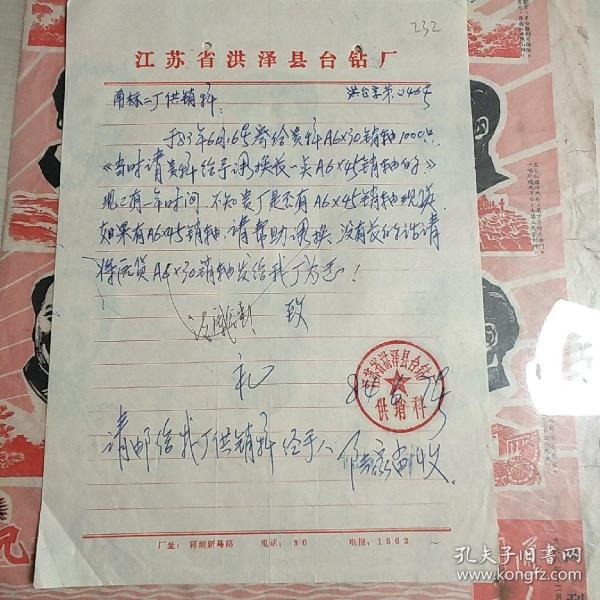 232
江苏省洪泽县台钻厂
南标二厂供销科：
洪台字第 2404号
于83年6月16号寄给贵科A6×30销轴1000只，
《当时请贵科给予调换长一点A6×45销轴的》
现已有一年时间，不知贵厂是否有A6×45销轴现货，
如果有A6×45销轴，请帮助调换，没有货的话请
将原货A6×30销轴发给我厂为志！
致
礼
江苏省洪泽县台钻厂
供销科
84
请邮给我厂供销科经手人 收.
厂址：蒋坝新马路 电话：30 电报：1562
孔夫子旧书网
www.kongfz.com